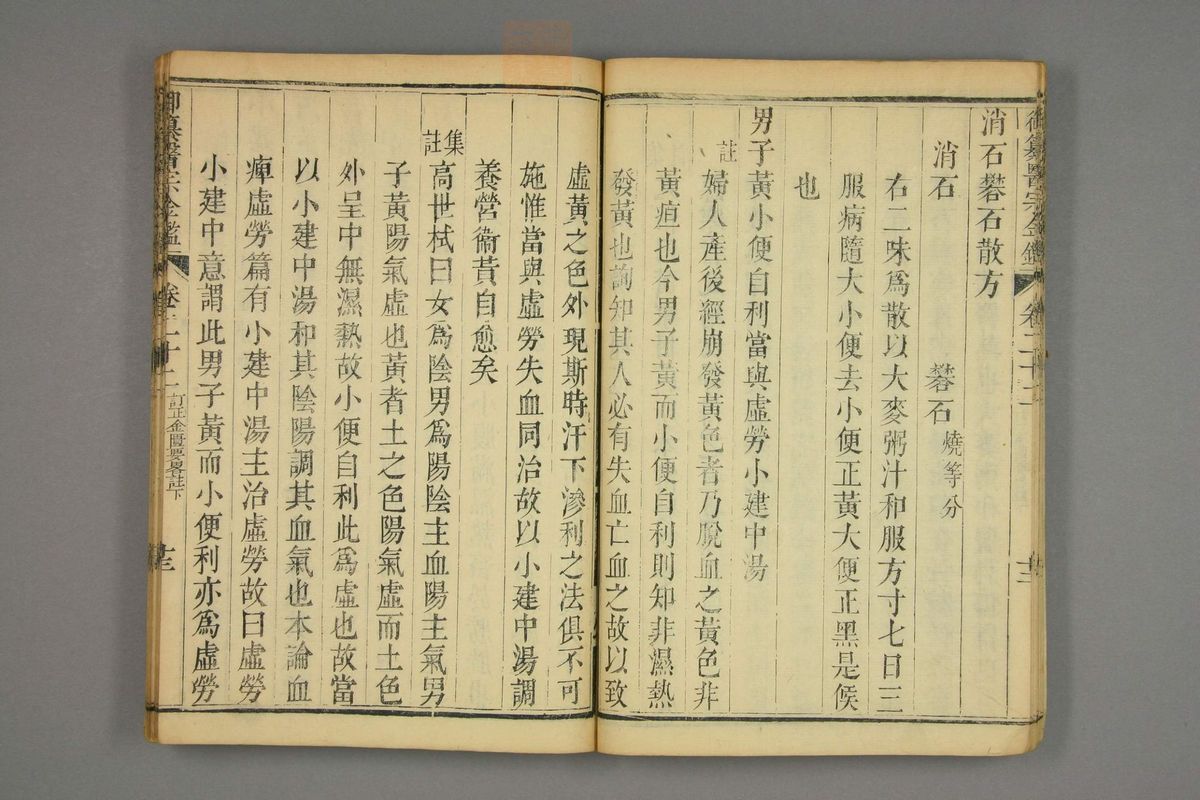 消石礬石散方
消石 礬石燒等分
右二味爲散以大麥粥汁和服方寸七日三
服病隨大小便去小便正黃大便正黑是候
也
男子黃小便自利當與虛勞小建中湯
註婦人產後經崩發黃色者乃脫血之黃色非
黃疸也今男子黃而小便自利則知非濕熱
發黃也詢知其人必有失血亡血之故以致
虛黃之色外現斯時汗下滲利之法俱不可
施惟當與虛勞失血同治故以小建中湯調
養營衞黃自愈矣
集註高世栻曰女爲陰男爲陽陰主血陽主氣男
子黃陽氣虛也黃者土之色陽氣虛而土色
外呈中無濕熱故小便自利此爲虛也故當
以小建中湯和其陰陽調其血氣也本論血
痺虛勞篇有小建中湯主治虛勞故曰虛勞
小建中意謂此男子黃而小便利亦爲虛勞
御纂醫宗金鑑 卷二十二 訂正金匱要畧註下